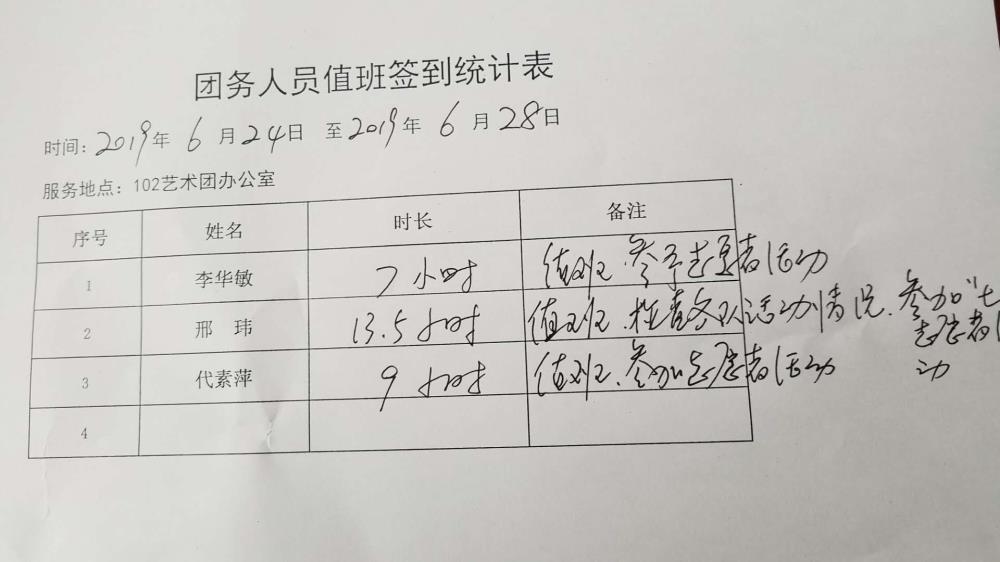 团务人员值班签到统计表
时间: 2019年 6 月 24日 至 2019年 6 月 28日
服务地点: 102艺术团办公室
序号 姓名 时长 备注
1 李华敏 7小时 值班.参予志愿者活动
2 邢 玮 13.5小时 值班.检查各队活动情况.参加
志愿者
动
3 代素萍 9小时 值班.参加志愿者活动
4